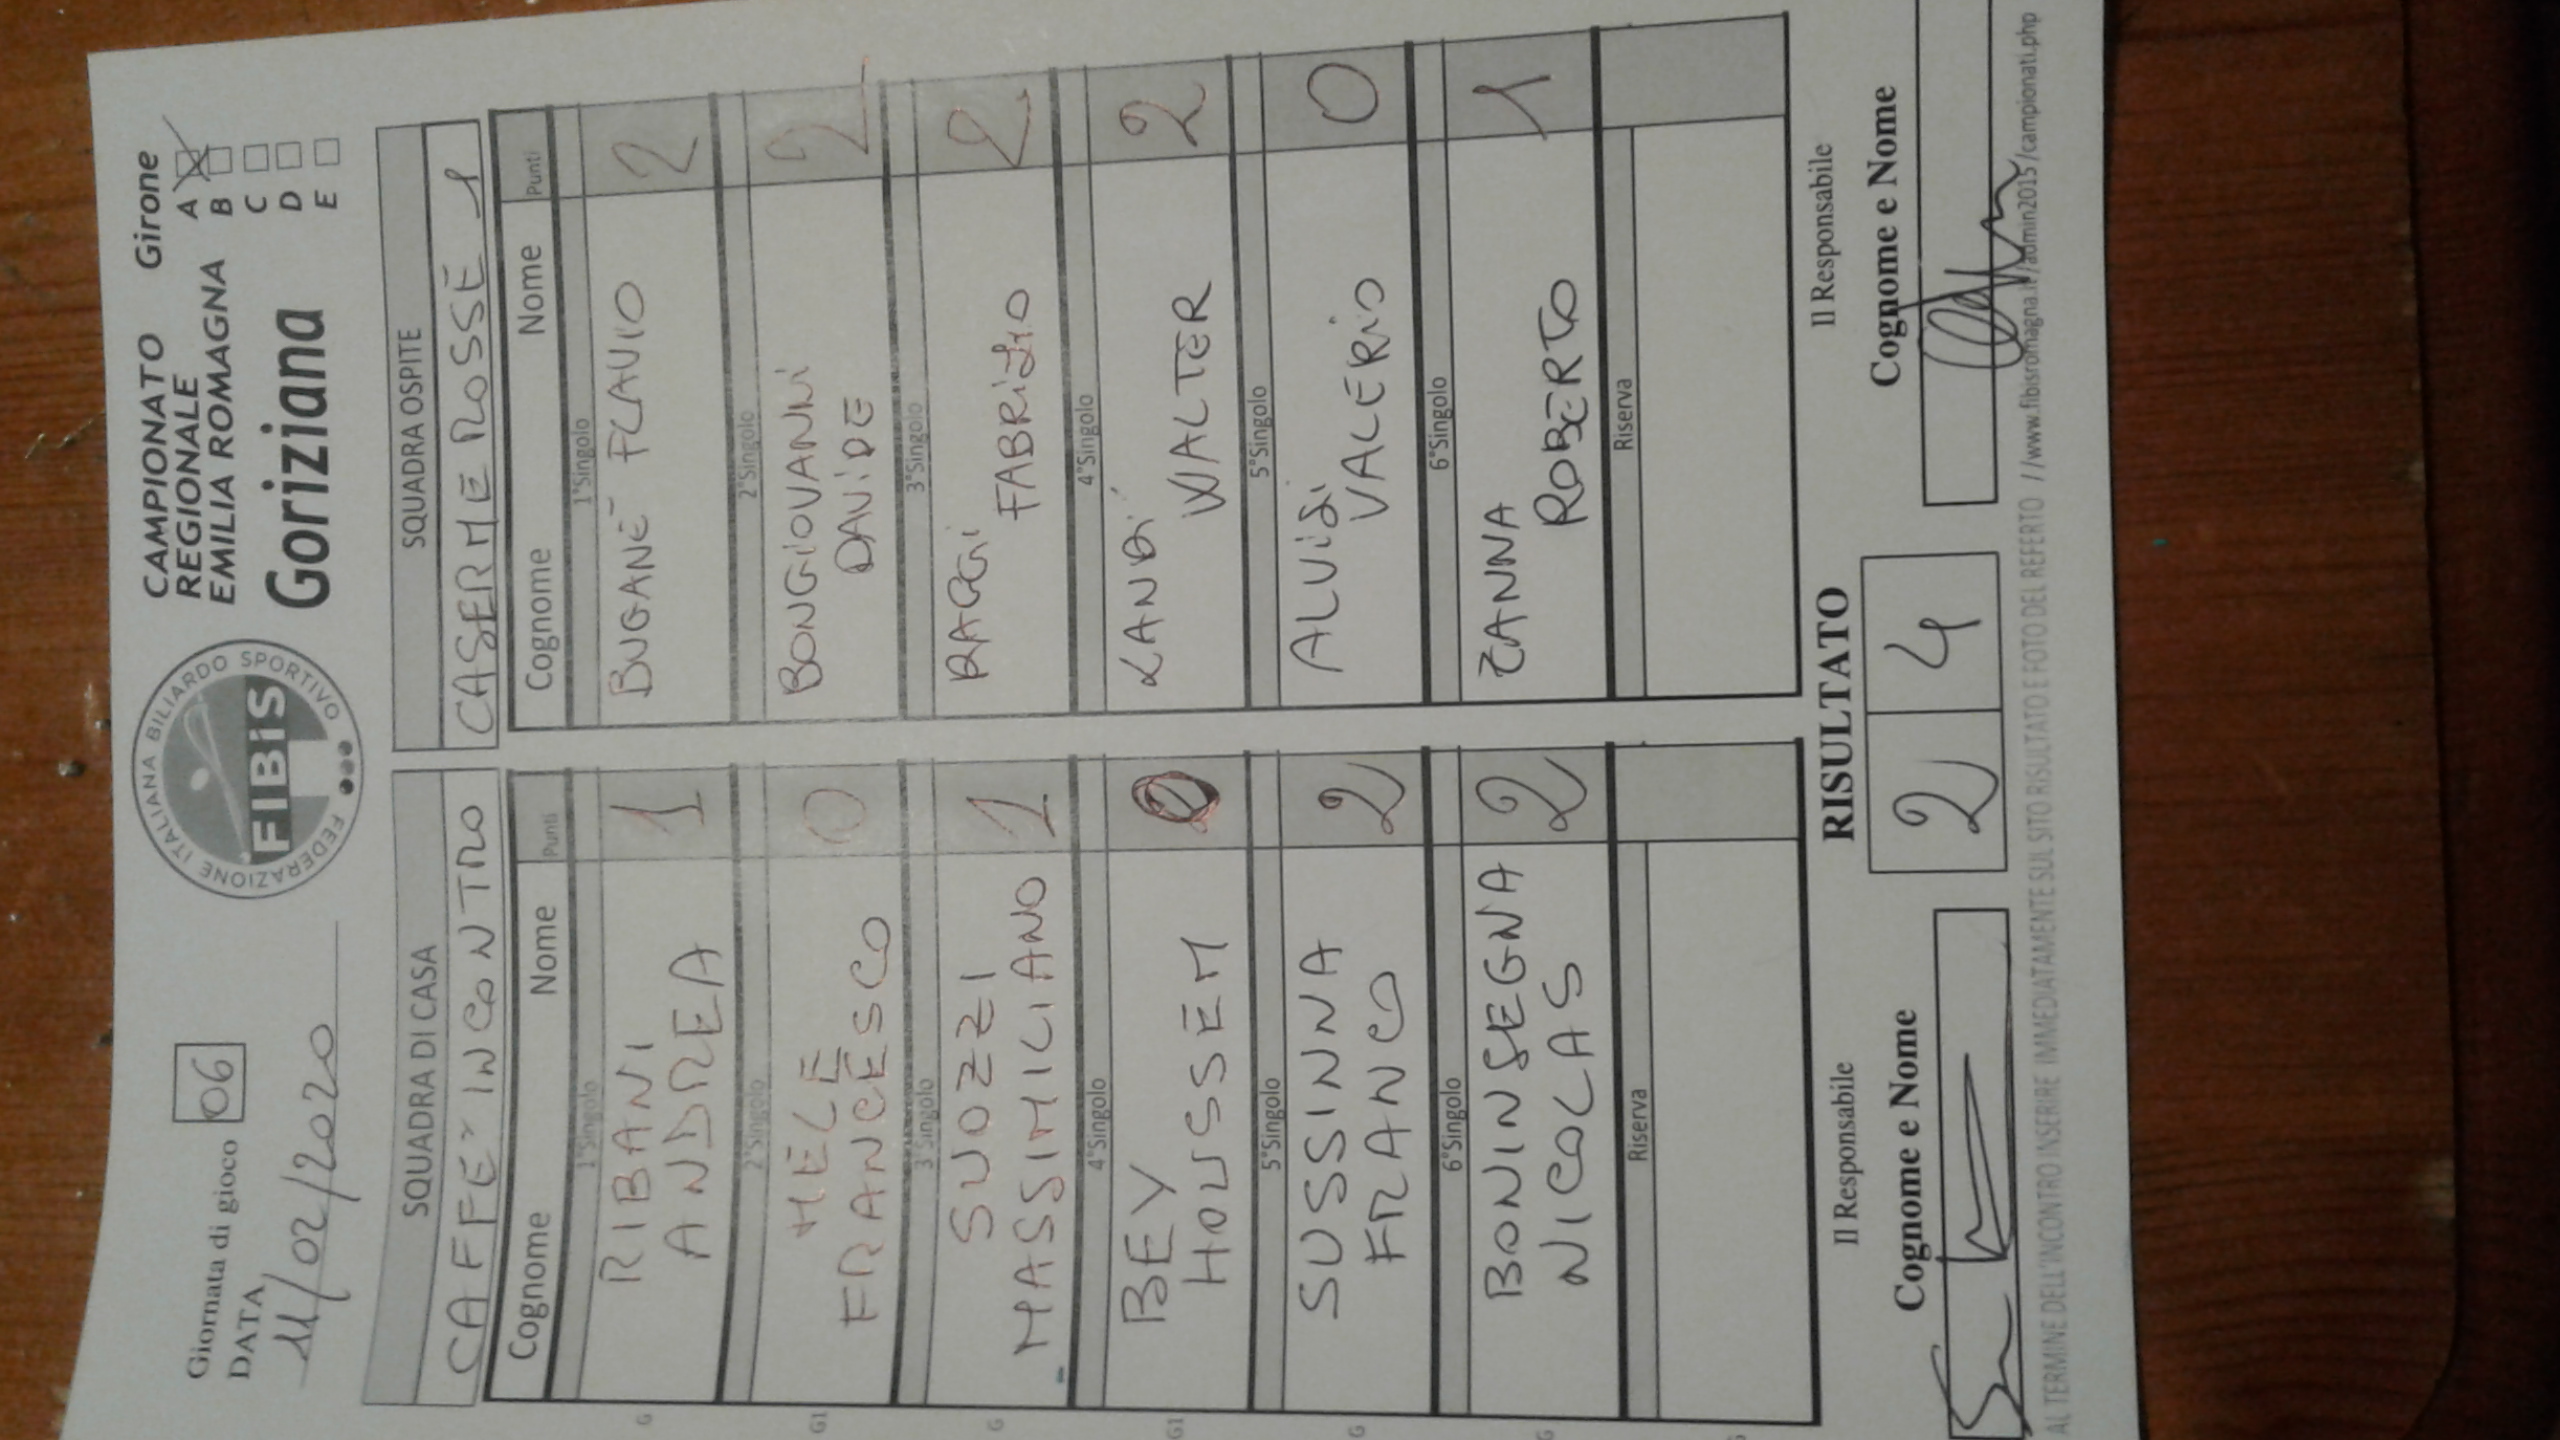 Giornata di gioco 06
DATA
11/02/2020
FEDERAZIONE ITALIANA BILIARDO SPORTIVO
FIBiS
CAMPIONATO
REGIONALE
EMILIA ROMAGNA
Goriziana
Girone
A
B
C
D
E
SQUADRA DI CASA
CAFFE' INCONTRO
Cognome Nome Punti
1°Singolo
RIBANI
ANDREA 1
2°Singolo
MELE
FRANCESCO 0
3°Singolo
SUOZZI
MASSIMILIANO 1
4°Singolo
BEY
HOUSSEM 0
5°Singolo
SUSSINNA
FRANCO 2
6°Singolo
BONINSEGNA
NICOLAS 2
Riserva
G
G1
G
G1
G
G
SQUADRA OSPITE
CASERME ROSSE 1
Cognome Nome Punti
1°Singolo
BUGANE' FLAVIO 2
2°Singolo
BONGiOVANNi
DAViDE 2
3°Singolo
RAGGi
FABRiZiO 2
4°Singolo
LANDi
WALTER 2
5°Singolo
ALUiSi
VALERiO 0
6°Singolo
ZANNA
ROBERTO 1
Riserva
Il Responsabile
Cognome e Nome
RISULTATO
2 4
Il Responsabile
Cognome e Nome
AL TERMINE DELL'INCONTRO INSERIRE IMMEDIATAMENTE SUL SITO RISULTATO E FOTO DEL REFERTO //www.fibisromagna.it/admin2015/campionati.php